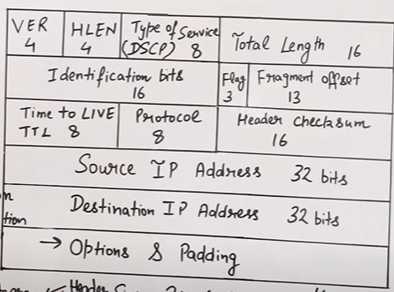 VER HLEN Type of Service
4 4 (DSCP) 8 Total Length 16
Identification bits Flag Fragment offset
16 3 13
Time to LIVE Protocol Header Checksum
TTL 8 8 16
Source IP Address 32 bits
Destination IP Address 32 bits
tion
→ Options & Padding
Header